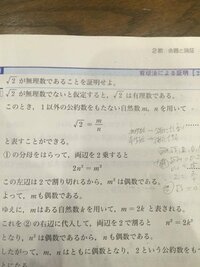 2節 命題と証明
背理法による証明
√2 が無理数であることを証明せよ。
√2 が無理数でないと仮定すると，√2 は有理数である。
このとき，1以外の公約数をもたない自然数 m, n を用いて
√2 = m/n
と表すことができる。
①の分母をはらって，両辺を2乗すると
2n² = m²
この左辺は2で割り切れるから，m² は偶数である。
よって，m も偶数である。
ゆえに，m はある自然数 k を用いて，m = 2k と表される。
これを②の右辺に代入して，両辺を2で割ると n² = 2k²
となり，n² は偶数であるから，n も偶数である。
したがって，m, n はともに偶数となり，2という公約数をも